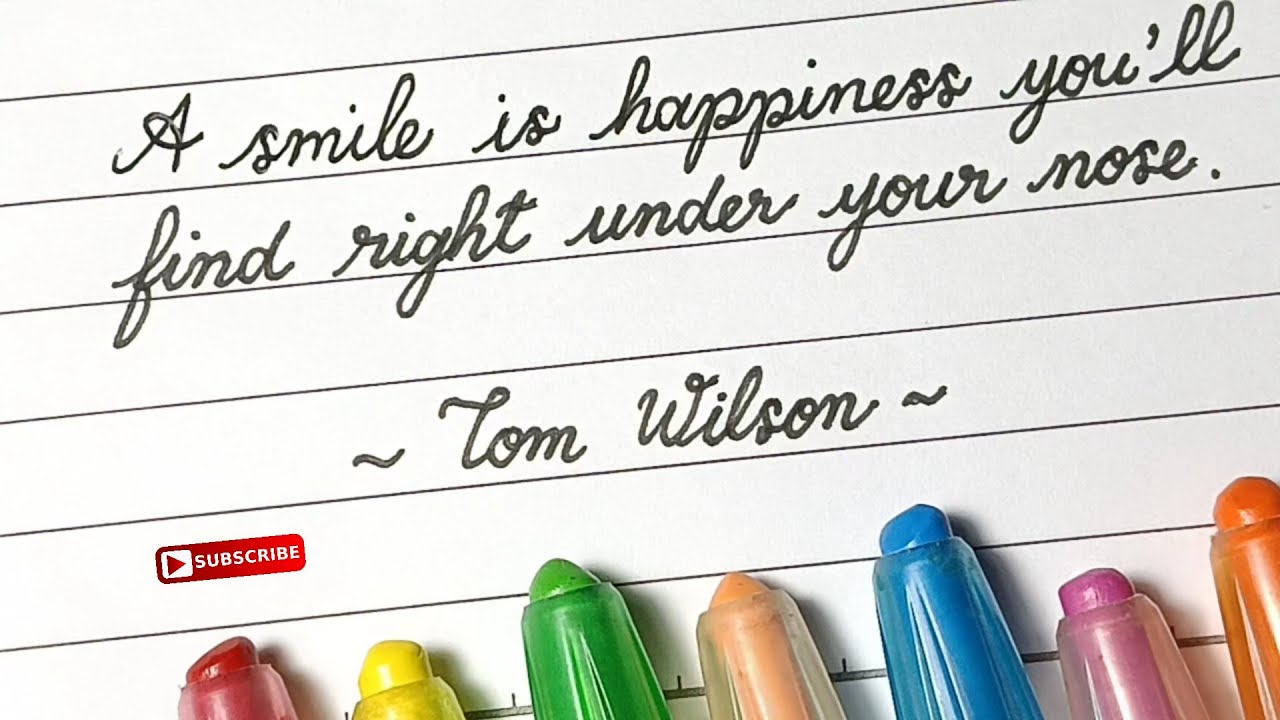 A smile is happiness you'll
find right under your nose.
~ Tom Wilson ~
SUBSCRIBE